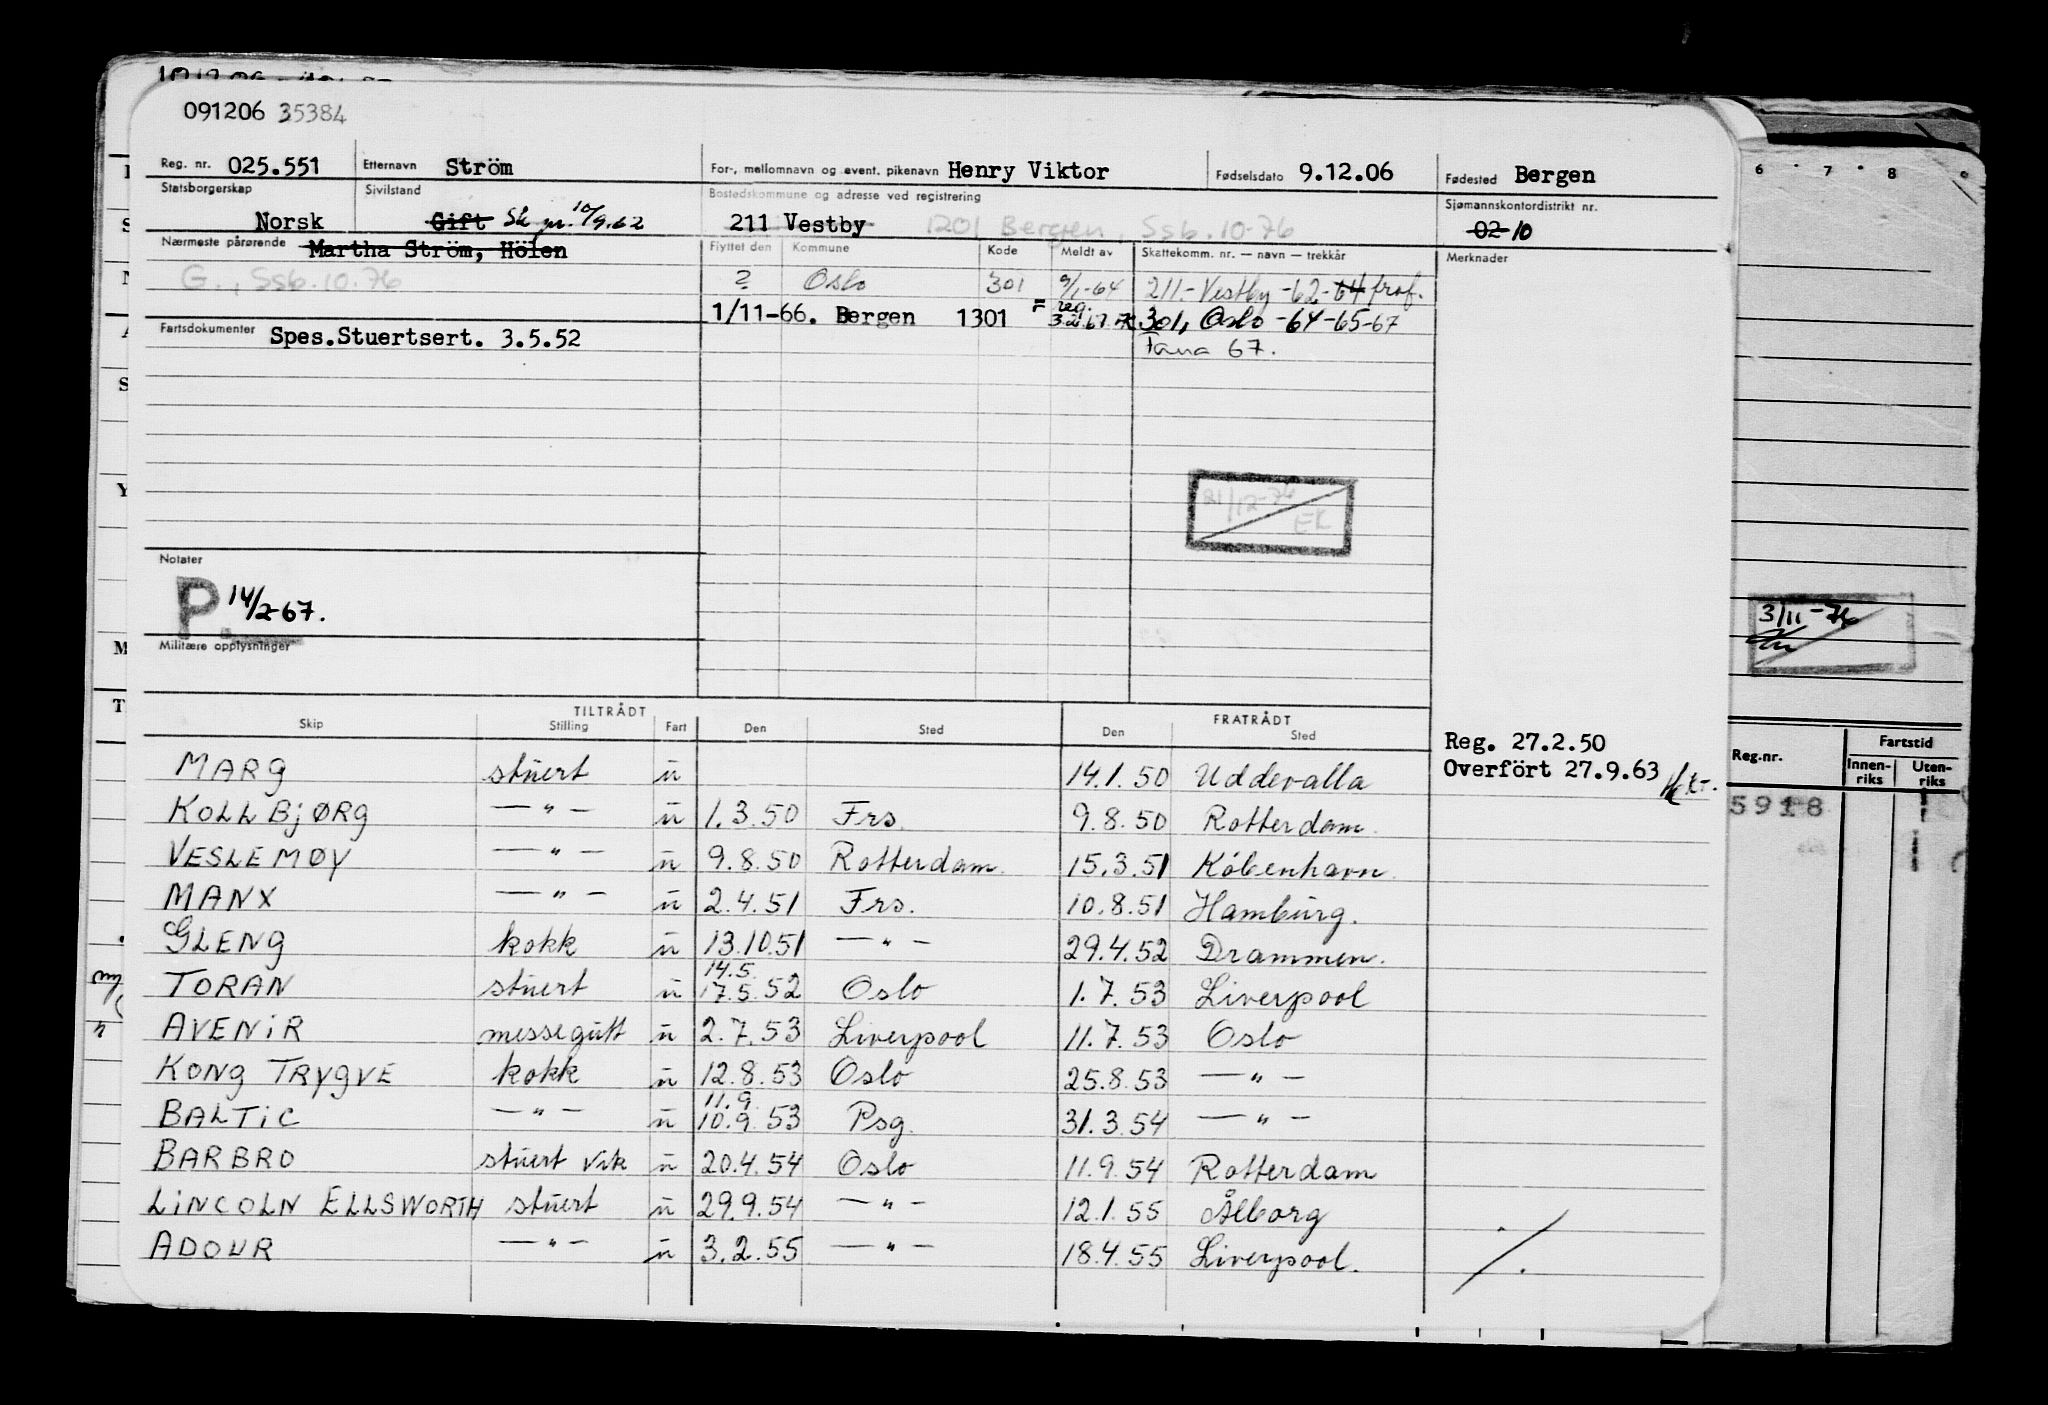 091206 35384
Reg. nr. 025.551 Etternavn Ström For-, mellomnavn og event. pikenavn Henry Viktor Fødselsdato 9.12.06 Fødested Bergen
Statsborgerskap Sivilstand Bostedskommune og adresse ved registrering Sjømannskontordistrikt nr.
Norsk Gift Sk pr. 10/9.62 211 Vestby 1201 Bergen, Ssb. 10-76 02 10
Nærmeste pårørende Martha Ström, Hölen Flyttet den Kommune Kode Meldt av Skattekomm. nr. — navn — trekkår Merknader
G., Ssb. 10.76 ? Oslo 301 9/1-64 211.- Vestby -62-64 frof.
1/11-66. Bergen 1301 = reg. 301, Oslo -64-65-67
Fartsdokumenter Spes.Stuertsert. 3.5.52 67.
21/12-76 EK
Notater
P. 14/2-67.
Militære opplysninger
3/11-76
TILTRÅDT FRATRÅDT
Skip Stilling Fart Den Sted Den Sted
Reg. 27.2.50
Overfört 27.9.63
Reg.nr. Fartstid
Innen-riks Uten-riks
5918
MARG stuert u 14.1.50 Uddevalla
KOLLBJØRG —"— u 1.3.50 Frs. 9.8.50 Rotterdam.
VESLEMØY —"— u 9.8.50 Rotterdam. 15.3.51 København.
MANX —"— u 2.4.51 Frs. 10.8.51 Hamburg.
GLENG kokk u 13.10.51 —"— 29.4.52 Drammen.
14.5.
TORAN stuert u 17.5.52 Oslo 1.7.53 Liverpool
AVENIR messegutt u 2.7.53 Liverpool 11.7.53 Oslo
KONG TRYGVE kokk u 12.8.53 Oslo 25.8.53 —"—
11.9.
BALTIC —"— u 10.9.53 Psg. 31.3.54 —"—
BARBRO stuert vik u 20.4.54 Oslo 11.9.54 Rotterdam
LINCOLN ELLSWORTH stuert u 29.9.54 —"— 12.1.55 Ålborg
ADOUR —"— u 3.2.55 —"— 18.4.55 Liverpool.